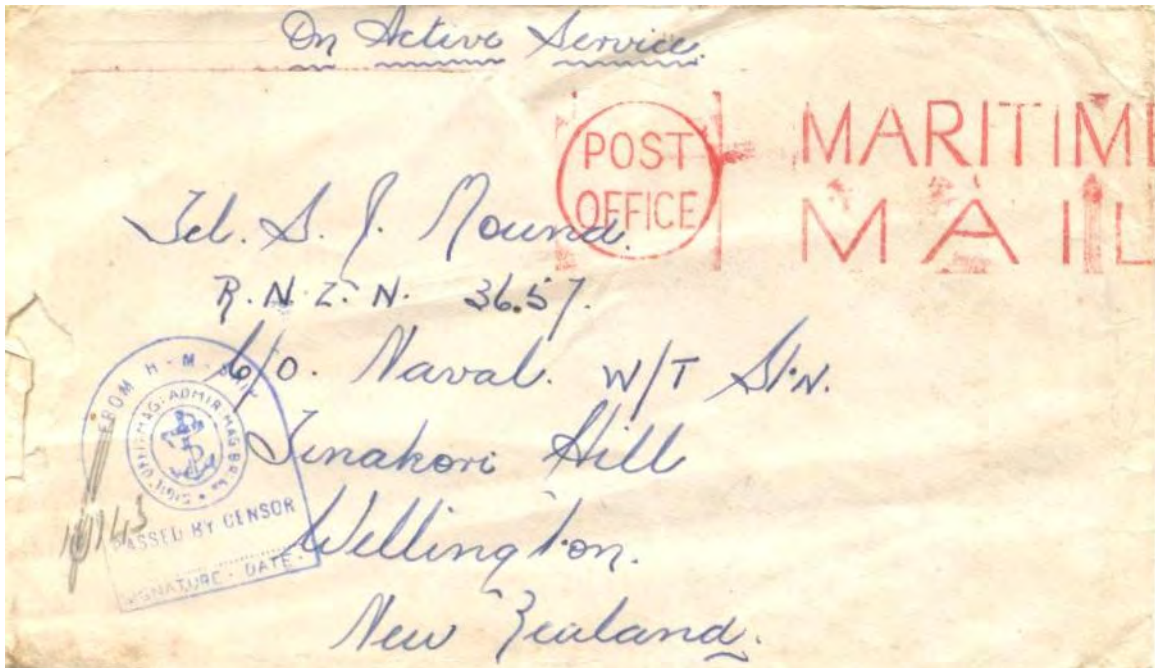 On Active Service.
POST
OFFICE
MARITIME
MAIL
Tel. S. J. Mound.
R.N.Z.N. 3657.
C/O. Naval. W/T Stn.
Tinakori Hill
Wellington.
New Zealand.
FROM H-M-SHIP
PASSED BY CENSOR
SIGNATURE - DATE